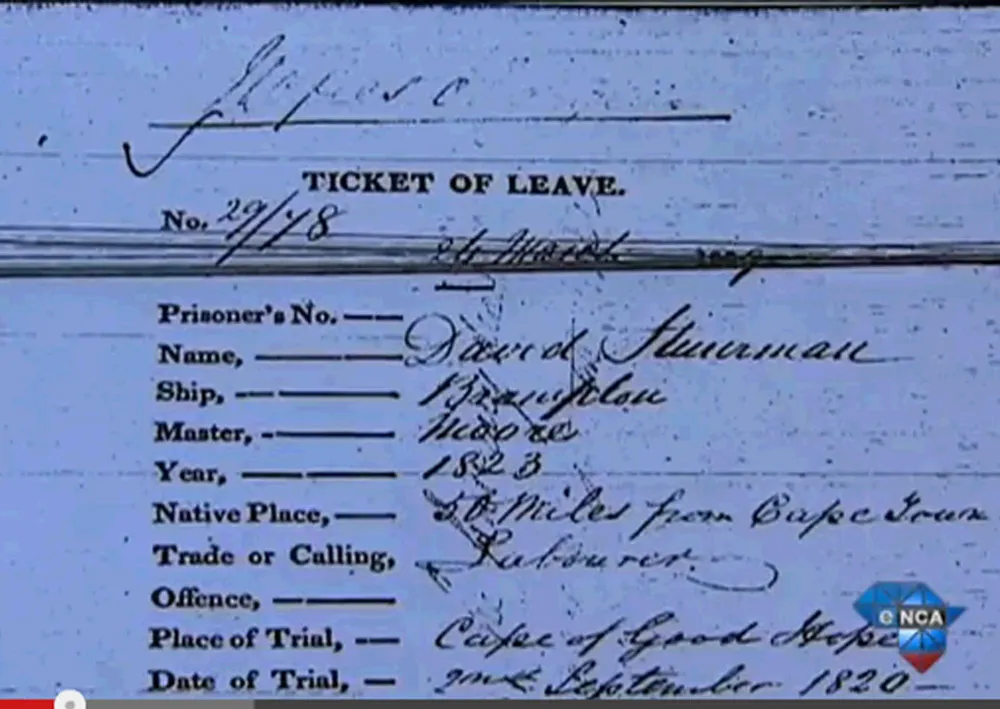 TICKET OF LEAVE.
No. 29/78
Prisoner's No.
Name, David Stuurman
Ship, Brampton
Master, Moore
Year, 1823
Native Place, 50 Miles from Cape Town
Trade or Calling, Labourer
Offence,
Place of Trial, Cape of Good Hope
Date of Trial, 2nd September 1820
eNCA